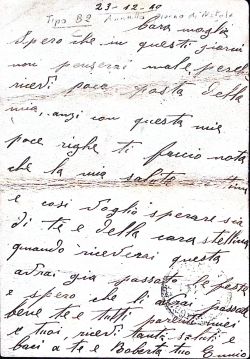 23-12-49
Tipo B2 Annullo giorno di Natale
Cara moglie
Spero che in questi giorni
non penserai male perché
ricevi poca posta della
mia, anzi con questa mia
poce righe ti faccio nota
che la mia salute
e così voglio sperare sia
di te e della cara stellina
quando riceverai questa
avrai già passato le feste
e spero che li avrai passate
bene te e tutti parenti miei
e tuoi, ricevi tanti saluti e
baci a te e Roberta tuo